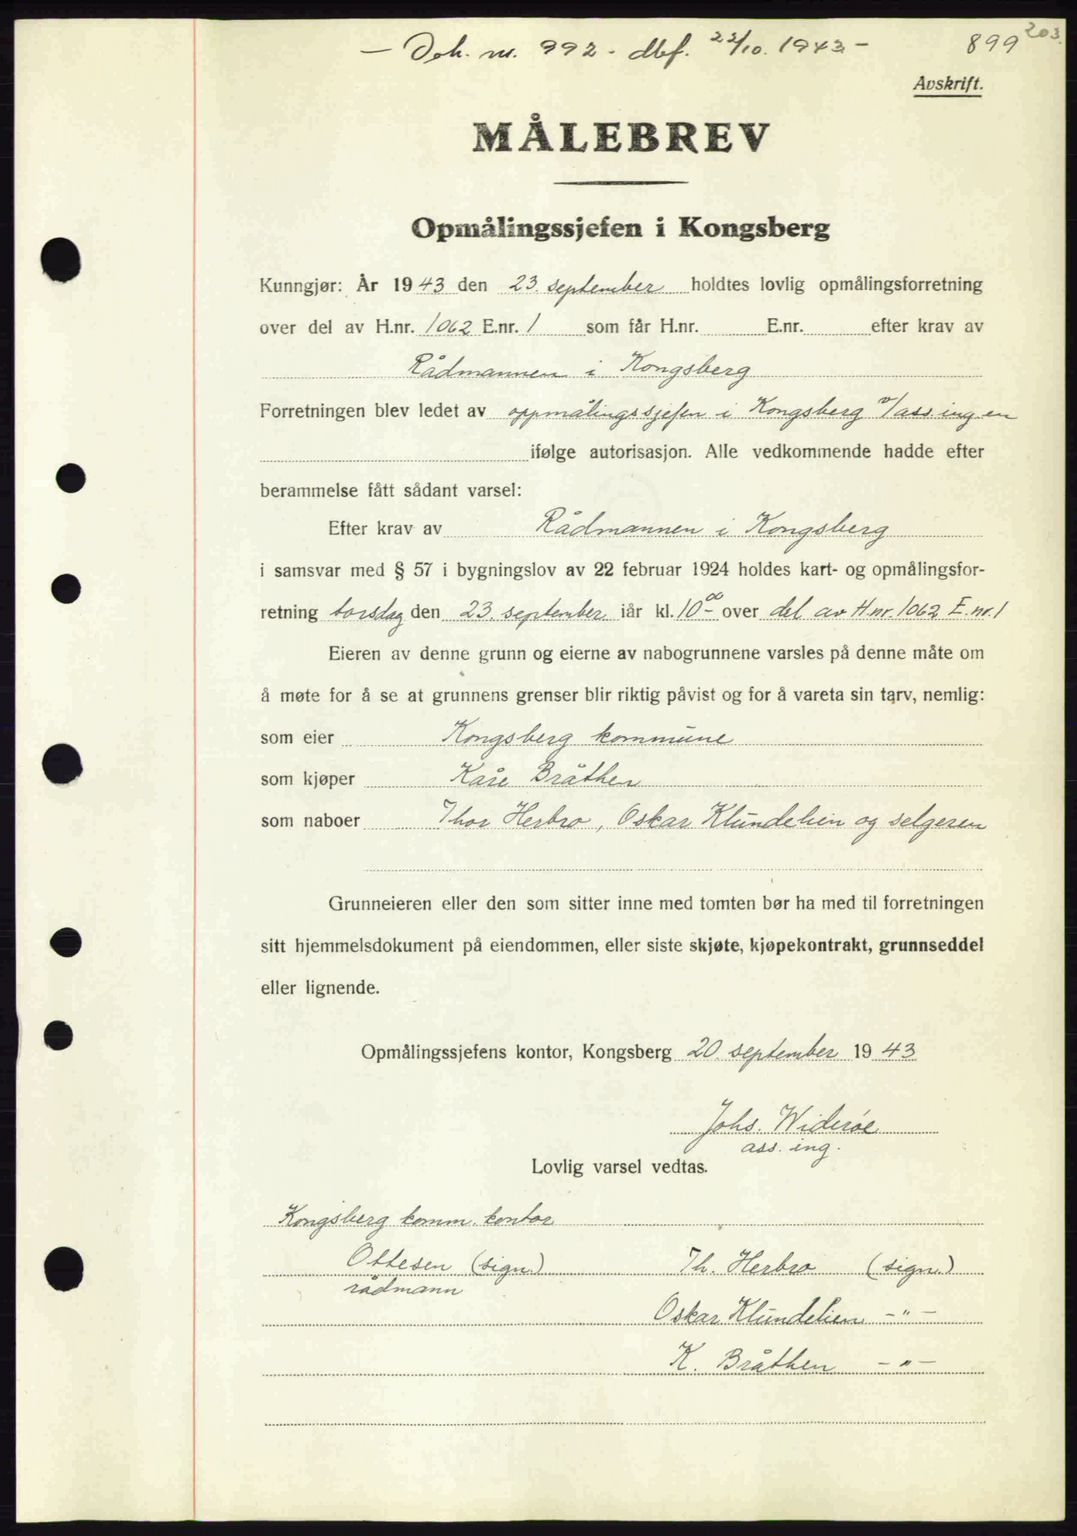 — Dok. nr. 992 - dbf. 22/10. 1943 -
899
203.
Avskrift.
MÅLEBREV
Opmålingssjefen i Kongsberg
Kunngjør: År 1943 den 23. september holdtes lovlig opmålingsforretning
over del av H.nr. 1062 E.nr. 1 som får H.nr. E.nr. efter krav av
Rådmannen i Kongsberg
Forretningen blev ledet av oppmålingssjefen i Kongsberg v/ass.ing en
ifølge autorisasjon. Alle vedkommende hadde efter
berammelse fått sådant varsel:
Efter krav av Rådmannen i Kongsberg
i samsvar med § 57 i bygningslov av 22 februar 1924 holdes kart- og opmålingsfor-
retning torsdag den 23. september iår kl. 10⁰⁰ over del av H.nr. 1062 E.nr. 1
Eieren av denne grunn og eierne av nabogrunnene varsles på denne måte om
å møte for å se at grunnens grenser blir riktig påvist og for å vareta sin tarv, nemlig:
som eier Kongsberg kommune
som kjøper Kåre Bråthen
som naboer Thor Herbro, Oskar Klundelien og selgeren
Grunneieren eller den som sitter inne med tomten bør ha med til forretningen
sitt hjemmelsdokument på eiendommen, eller siste skjøte, kjøpekontrakt, grunnseddel
eller lignende.
Opmålingssjefens kontor, Kongsberg 20. september 1943
Johs. Widerøe
ass. ing.
Lovlig varsel vedtas.
Kongsberg komm. kontor
Ottesen (sign.) Th. Herbro (sign.)
rådmann
Oskar Klundelien —"—
K. Bråthen —"—